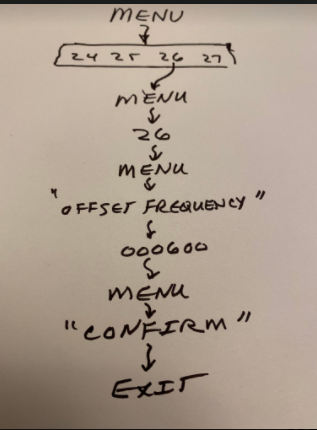 MENU
24 25 26 27
MENU
26
MENU
"OFFSET FREQUENCY"
000600
MENU
"CONFIRM"
EXIT